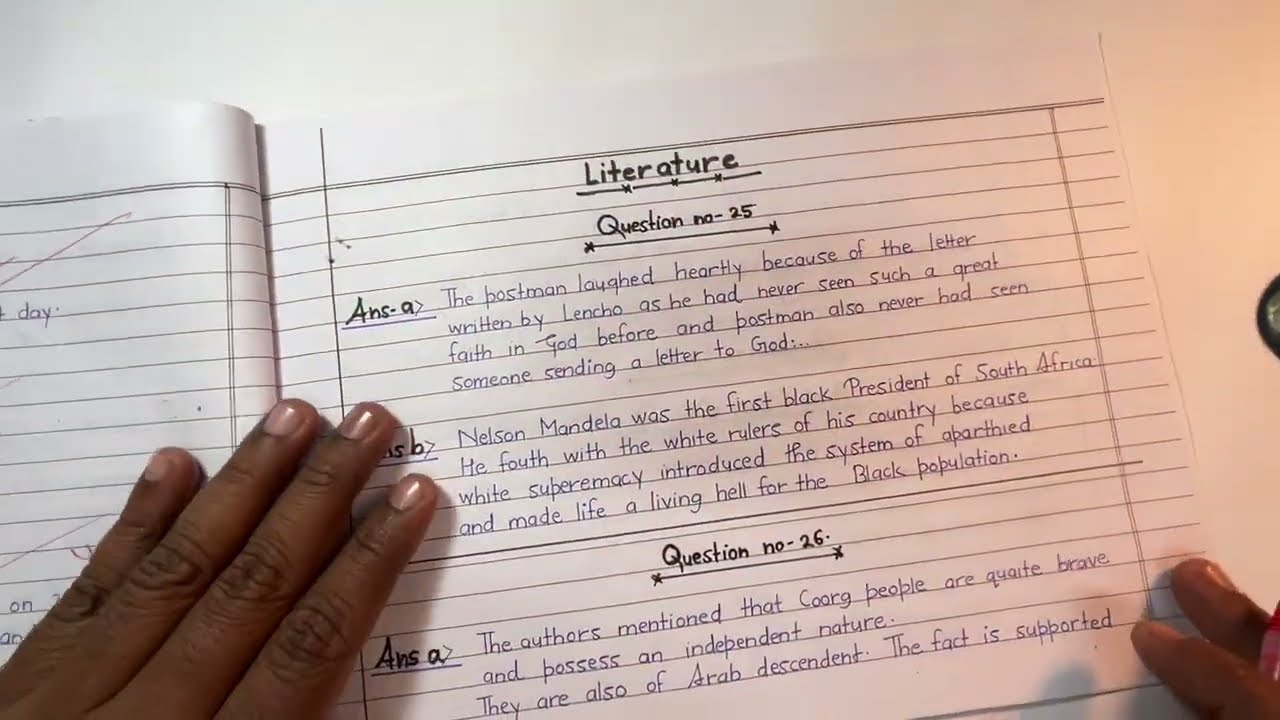 Literature
Question no- 25
Ans-a> The postman laughed heartly because of the letter
written by Lencho as he had never seen such a great
faith in God before and postman also never had seen
someone sending a letter to God:..
ns b> Nelson Mandela was the first black President of South Africa.
He fouth with the white rulers of his country because
white superemacy introduced the system of aparthied
and made life a living hell for the Black population.
Question no-26.
Ans a> The authors mentioned that Coorg people are quaite brave
and possess an independent nature.
They are also of Arab descendent. The fact is supported
day.
on